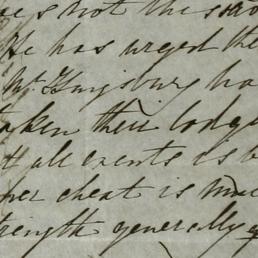 is not the
He has urged the
Mr Kingsbury ha
taken their lodg
At all events is b
her cheat is
trength generally